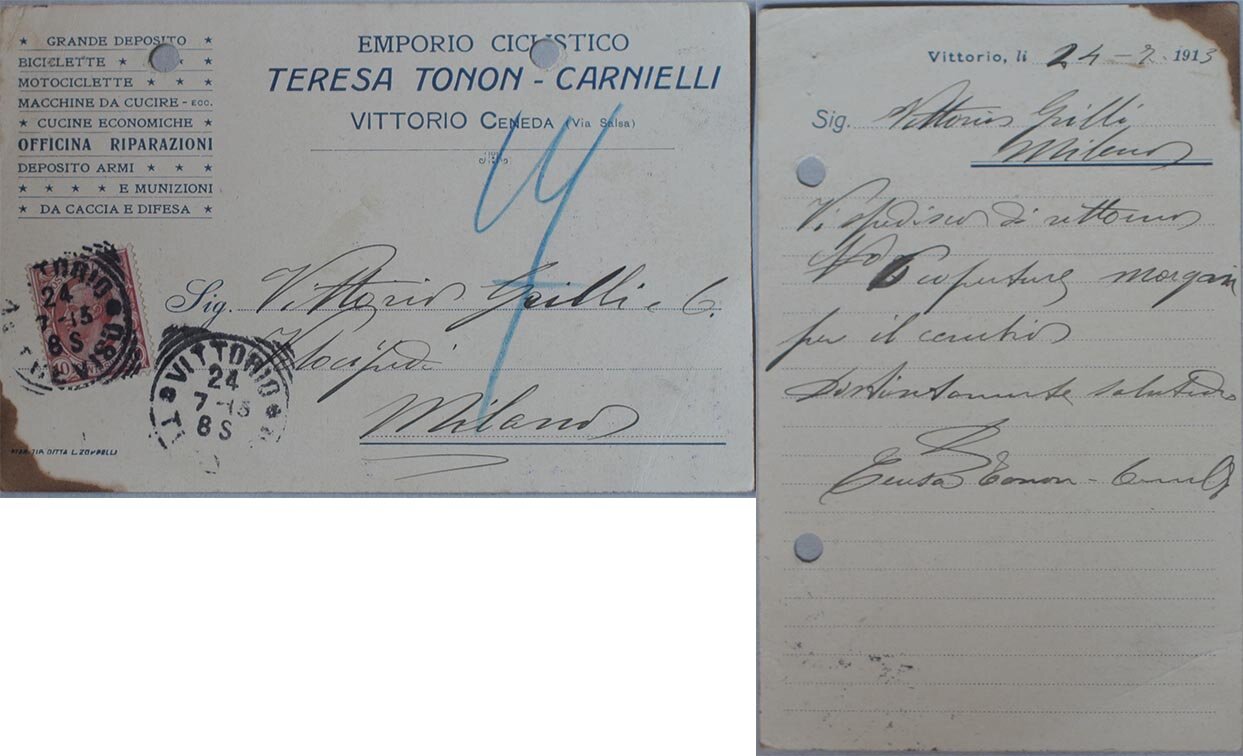 ★ GRANDE DEPOSITO ★
BICICLETTE ★ ★ ★
MOTOCICLETTE ★ ★
MACCHINE DA CUCIRE - ECC.
★ CUCINE ECONOMICHE ★
OFFICINA RIPARAZIONI
DEPOSITO ARMI ★ ★ ★
★ ★ ★ ★ E MUNIZIONI
★ DA CACCIA E DIFESA ★
EMPORIO CICLISTICO
TERESA TONON - CARNIELLI
VITTORIO CENEDA (Via Salsa)
Sig. Vittorio Grilli e C.
Velocipedi
Milano
VITTORIO
24
7-13
8 S
TREVISO
10
VITTORIO
24
7-13
8 S
DITTA L. ZOPPELLI
Vittorio, li 24 - 7 1913
Sig. Vittorio Grilli
Milano
Vi spedisco di ritorno
No 6 coperture morgan
per il cambio
Distintamente
Teresa Tonon -